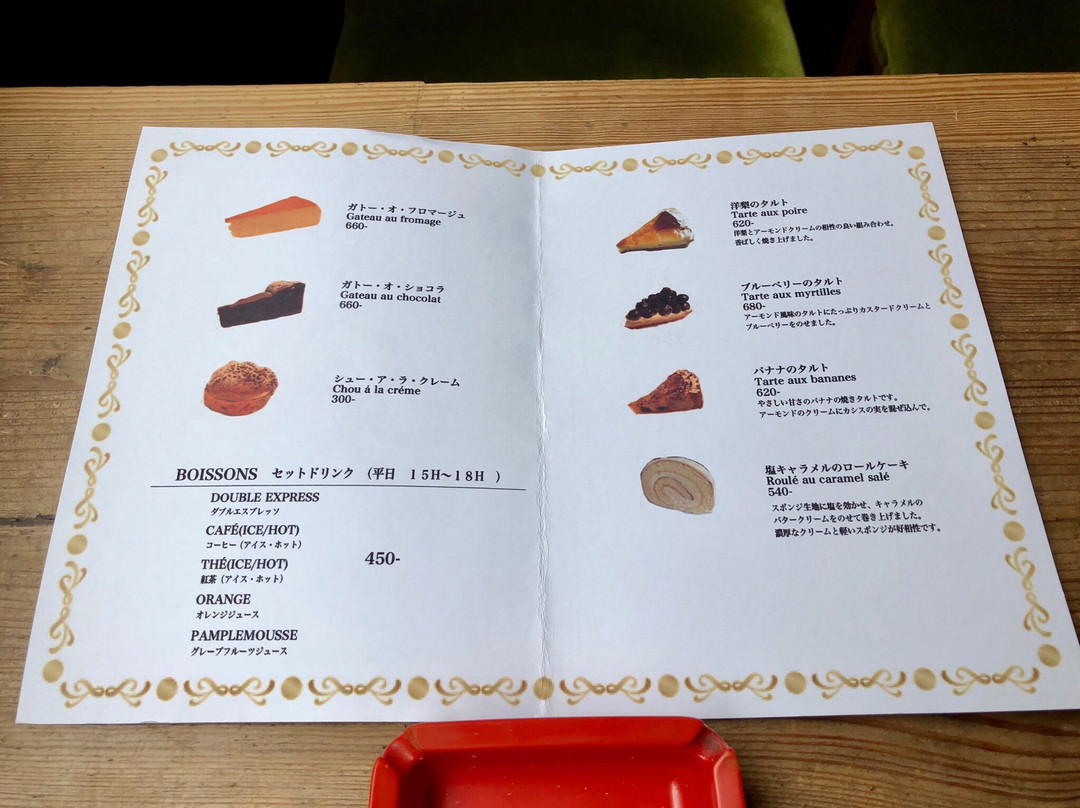 ガトー・オ・フロマージュ
Gateau au fromage
660-
ガトー・オ・ショコラ
Gateau au chocolat
660-
シュー・ア・ラ・クレーム
Chou á la créme
300-
BOISSONS セットドリンク （平日 １５H〜１８H ）
DOUBLE EXPRESS
ダブルエスプレッソ
CAFÉ(ICE/HOT)
コーヒー（アイス・ホット）
THÉ(ICE/HOT)
紅茶（アイス・ホット）
450-
ORANGE
オレンジジュース
PAMPLEMOUSSE
グレープフルーツジュース
洋梨のタルト
Tarte aux poire
620-
洋梨とアーモンドクリームの相性の良い組み合わせ。
香ばしく焼き上げました。
ブルーベリーのタルト
Tarte aux myrtilles
680-
アーモンド風味のタルトにたっぷりカスタードクリームと
ブルーベリーをのせました。
バナナのタルト
Tarte aux bananes
620-
やさしい甘さのバナナの焼きタルトです。
アーモンドのクリームにカシスの実を混ぜ込んで。
塩キャラメルのロールケーキ
Roulé au caramel salé
540-
スポンジ生地に塩を効かせ、キャラメルの
バタークリームをのせて巻き上げました。
濃厚なクリームと軽いスポンジが好相性です。